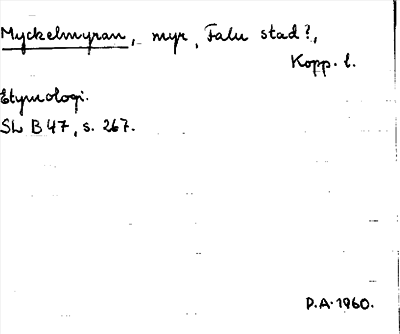 Myckelmyran, myr, Falu stad?,
Kopp. l.
Etymologi.
SL B 47, s. 267.
P.A. 1960.